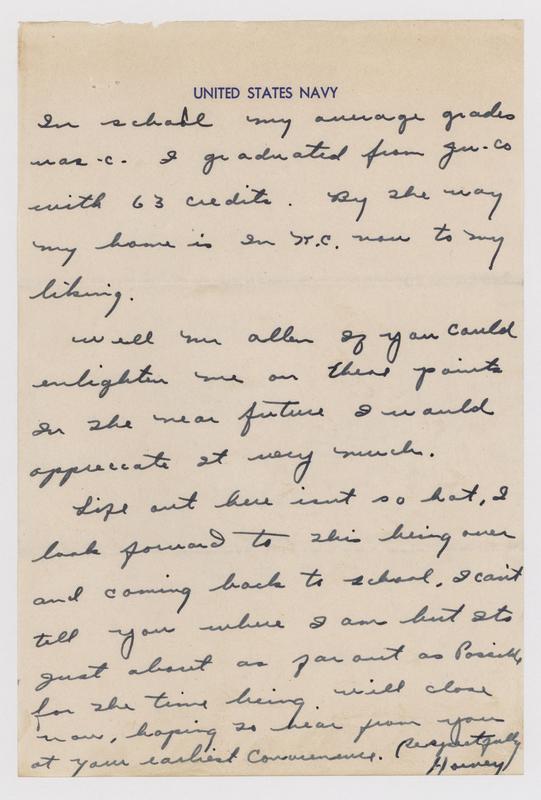 UNITED STATES NAVY
In school my average grades
was -c. I graduated from Ju-Co
with 63 credits. By the way
my home is in K.C. now to my
liking.
Well Mr Allen If you could
enlighten me on these points
In the near future I would
appreciate It very much.
Life out here isnt so hot, I
look forward to this being over
and coming back to school. I can't
tell you where I am but Its
Just about as far out as Possible
for the time being. Will close
now, hoping to hear from you
at your earliest Convenience. Respectfully